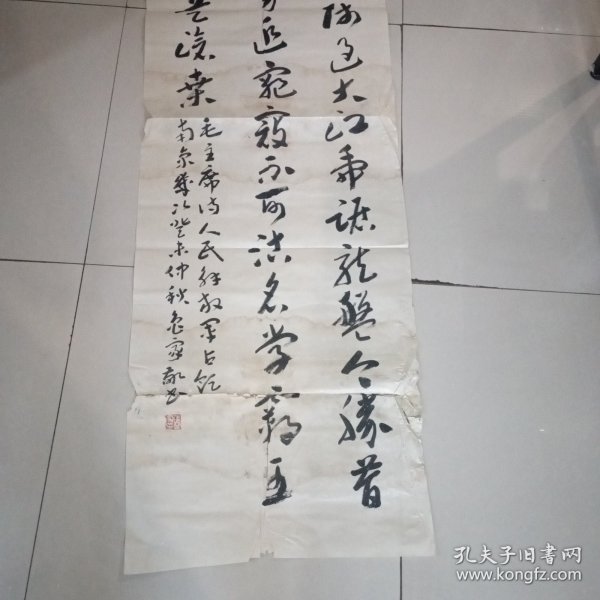 师过大江虎踞龙盘今胜昔
勇追穷寇不可沽名学霸王
是沧桑
毛主席诗人民解放军占领
南京岁次癸未仲秋
孔夫子旧书网
www.kongfz.com